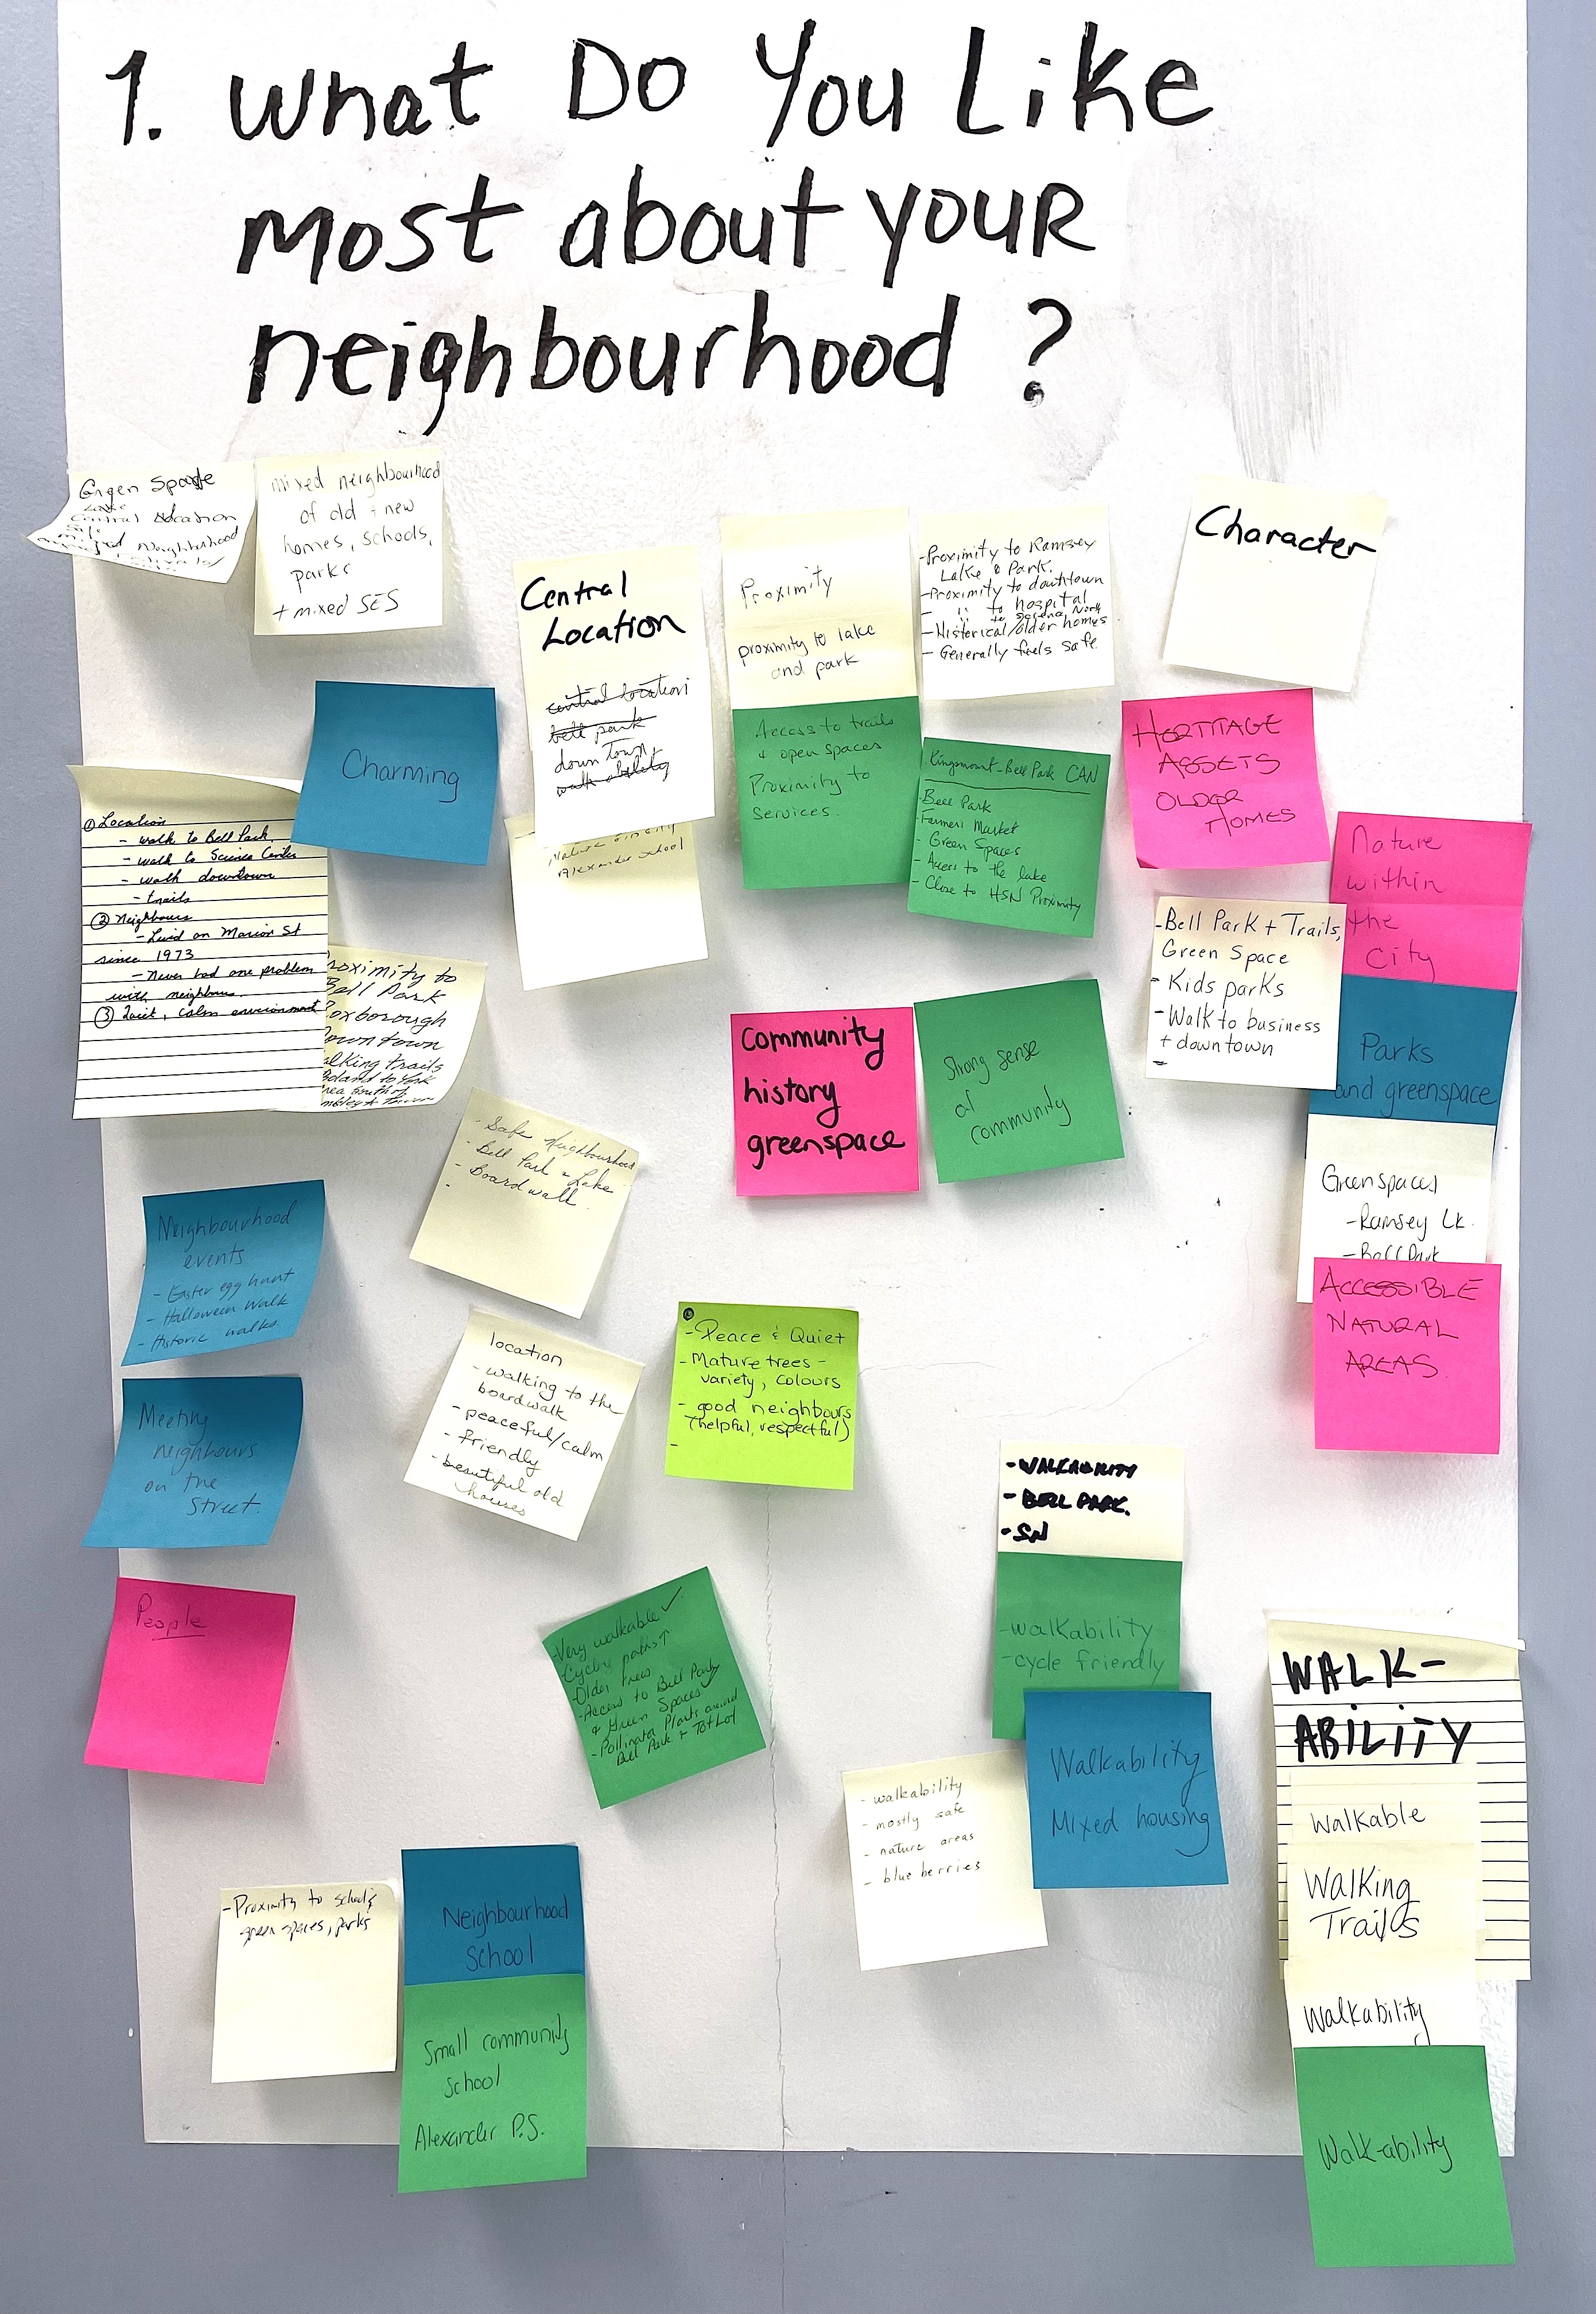 1. What Do You Like
most about your
neighbourhood ?
Green Space
Lake
Central Location
Safe
Neighborhood
mixed neighbourhood
of old + new
homes, schools,
parks
+ mixed SES
Central
Location
central location
bell park
down town
walk-ability
Proximity
proximity to lake
and park
- Proximity to Ramsey
Lake & Park.
- Proximity to downtown
- " to hospital
- " to Science North
- Historical/older homes
- Generally feels safe.
Character
Charming
Access to trails
+ open spaces
Proximity to
services.
Kingsmount-Bell Park CAN
- Bell Park
- Farmers Market
- Green Spaces
- Access to the lake
- Close to HSN Proximity
HERITAGE
ASSETS
OLDER
HOMES
Nature
within
the
City
① Location
- walk to Bell Park
- walk to Science Center
- walk downtown
- trails
② Neighbours
- Lived on Marion St
since 1973
- Never had one problem
with neighbours.
③ Quiet, calm environment
Nature in city
Alexander School
roximity to
Bell Park
oxborough
own town
alking trails
Boland to York
rea South of
- Bell Park + Trails,
Green Space
- Kids parks
- Walk to business
+ downtown
-
Parks
and greenspace
Community
history
greenspace
Strong sense
of
community
- Safe Neighbourhood
- Bell Park & Lake
- Boardwalk
-
Greenspaces
- Ramsey Lk.
- Bell Park
Neighbourhood
events
- Easter egg hunt
- Halloween Walk
- Historic walks
ACCESSIBLE
NATURAL
AREAS
location
- walking to the
boardwalk
- peaceful/calm
- friendly
- beautiful old
houses
- Peace & Quiet
- Mature trees -
variety, colours
- good neighbours
(helpful, respectful)
-
Meeting
neighbours
on the
Street.
- WALKABILITY
- BELL PARK.
- SN
- walkability
- cycle friendly
People
- Very walkable ✓
- Cycling paths
- Older trees
- Access to Bell Park
& Green Spaces
- Pollinator Plants around
Bell Park + Tot Lot
WALK-
ABILITY
Walkable
Walking
Trails
Walkability
Walk-ability
Walkability
Mixed housing
- walkability
- mostly safe
- nature areas
- blueberries
- Proximity to schools
green spaces, parks
Neighbourhood
School
Small community
school
Alexander P.S.